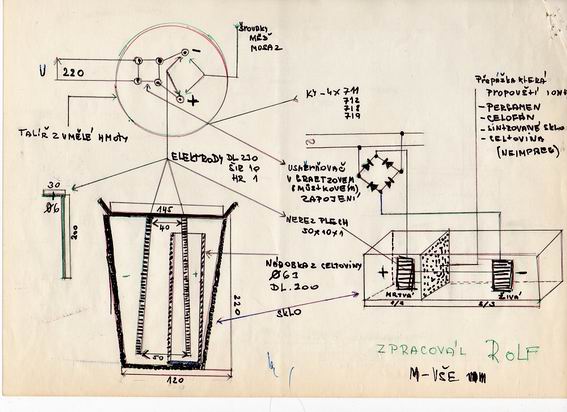 ŠROUBKY
MĚĎ
MOSAZ
U
220
-
+
TALÍŘ Z UMĚLÉ HMOTY
KY - 4 x 711
712
718
719
PŘEPÁŽKA KTERÁ
PROPOUŠTÍ IONTY
- PERGAMEN
- CELOFÁN
- SINTROVANÉ SKLO
- CELTOVINA
(NEIMPREG)
ELEKTRODY DL 230
ŠIR 10
HR 1
USMĚRŇOVAČ
V GRAETZOVĚM
(MŮSTKOVÉM)
ZAPOJENÍ
30
Ø6
200
145
40
NEREZ PLECH
50x10x1
NÁDOBKA Z CELTOVINY
Ø 63
DL. 200
SKLO
-
+
220
50
120
+
-
MRTVÁ
ŽIVÁ
1/3
2/3
ZPRACOVAL ROLF
M-VŠE